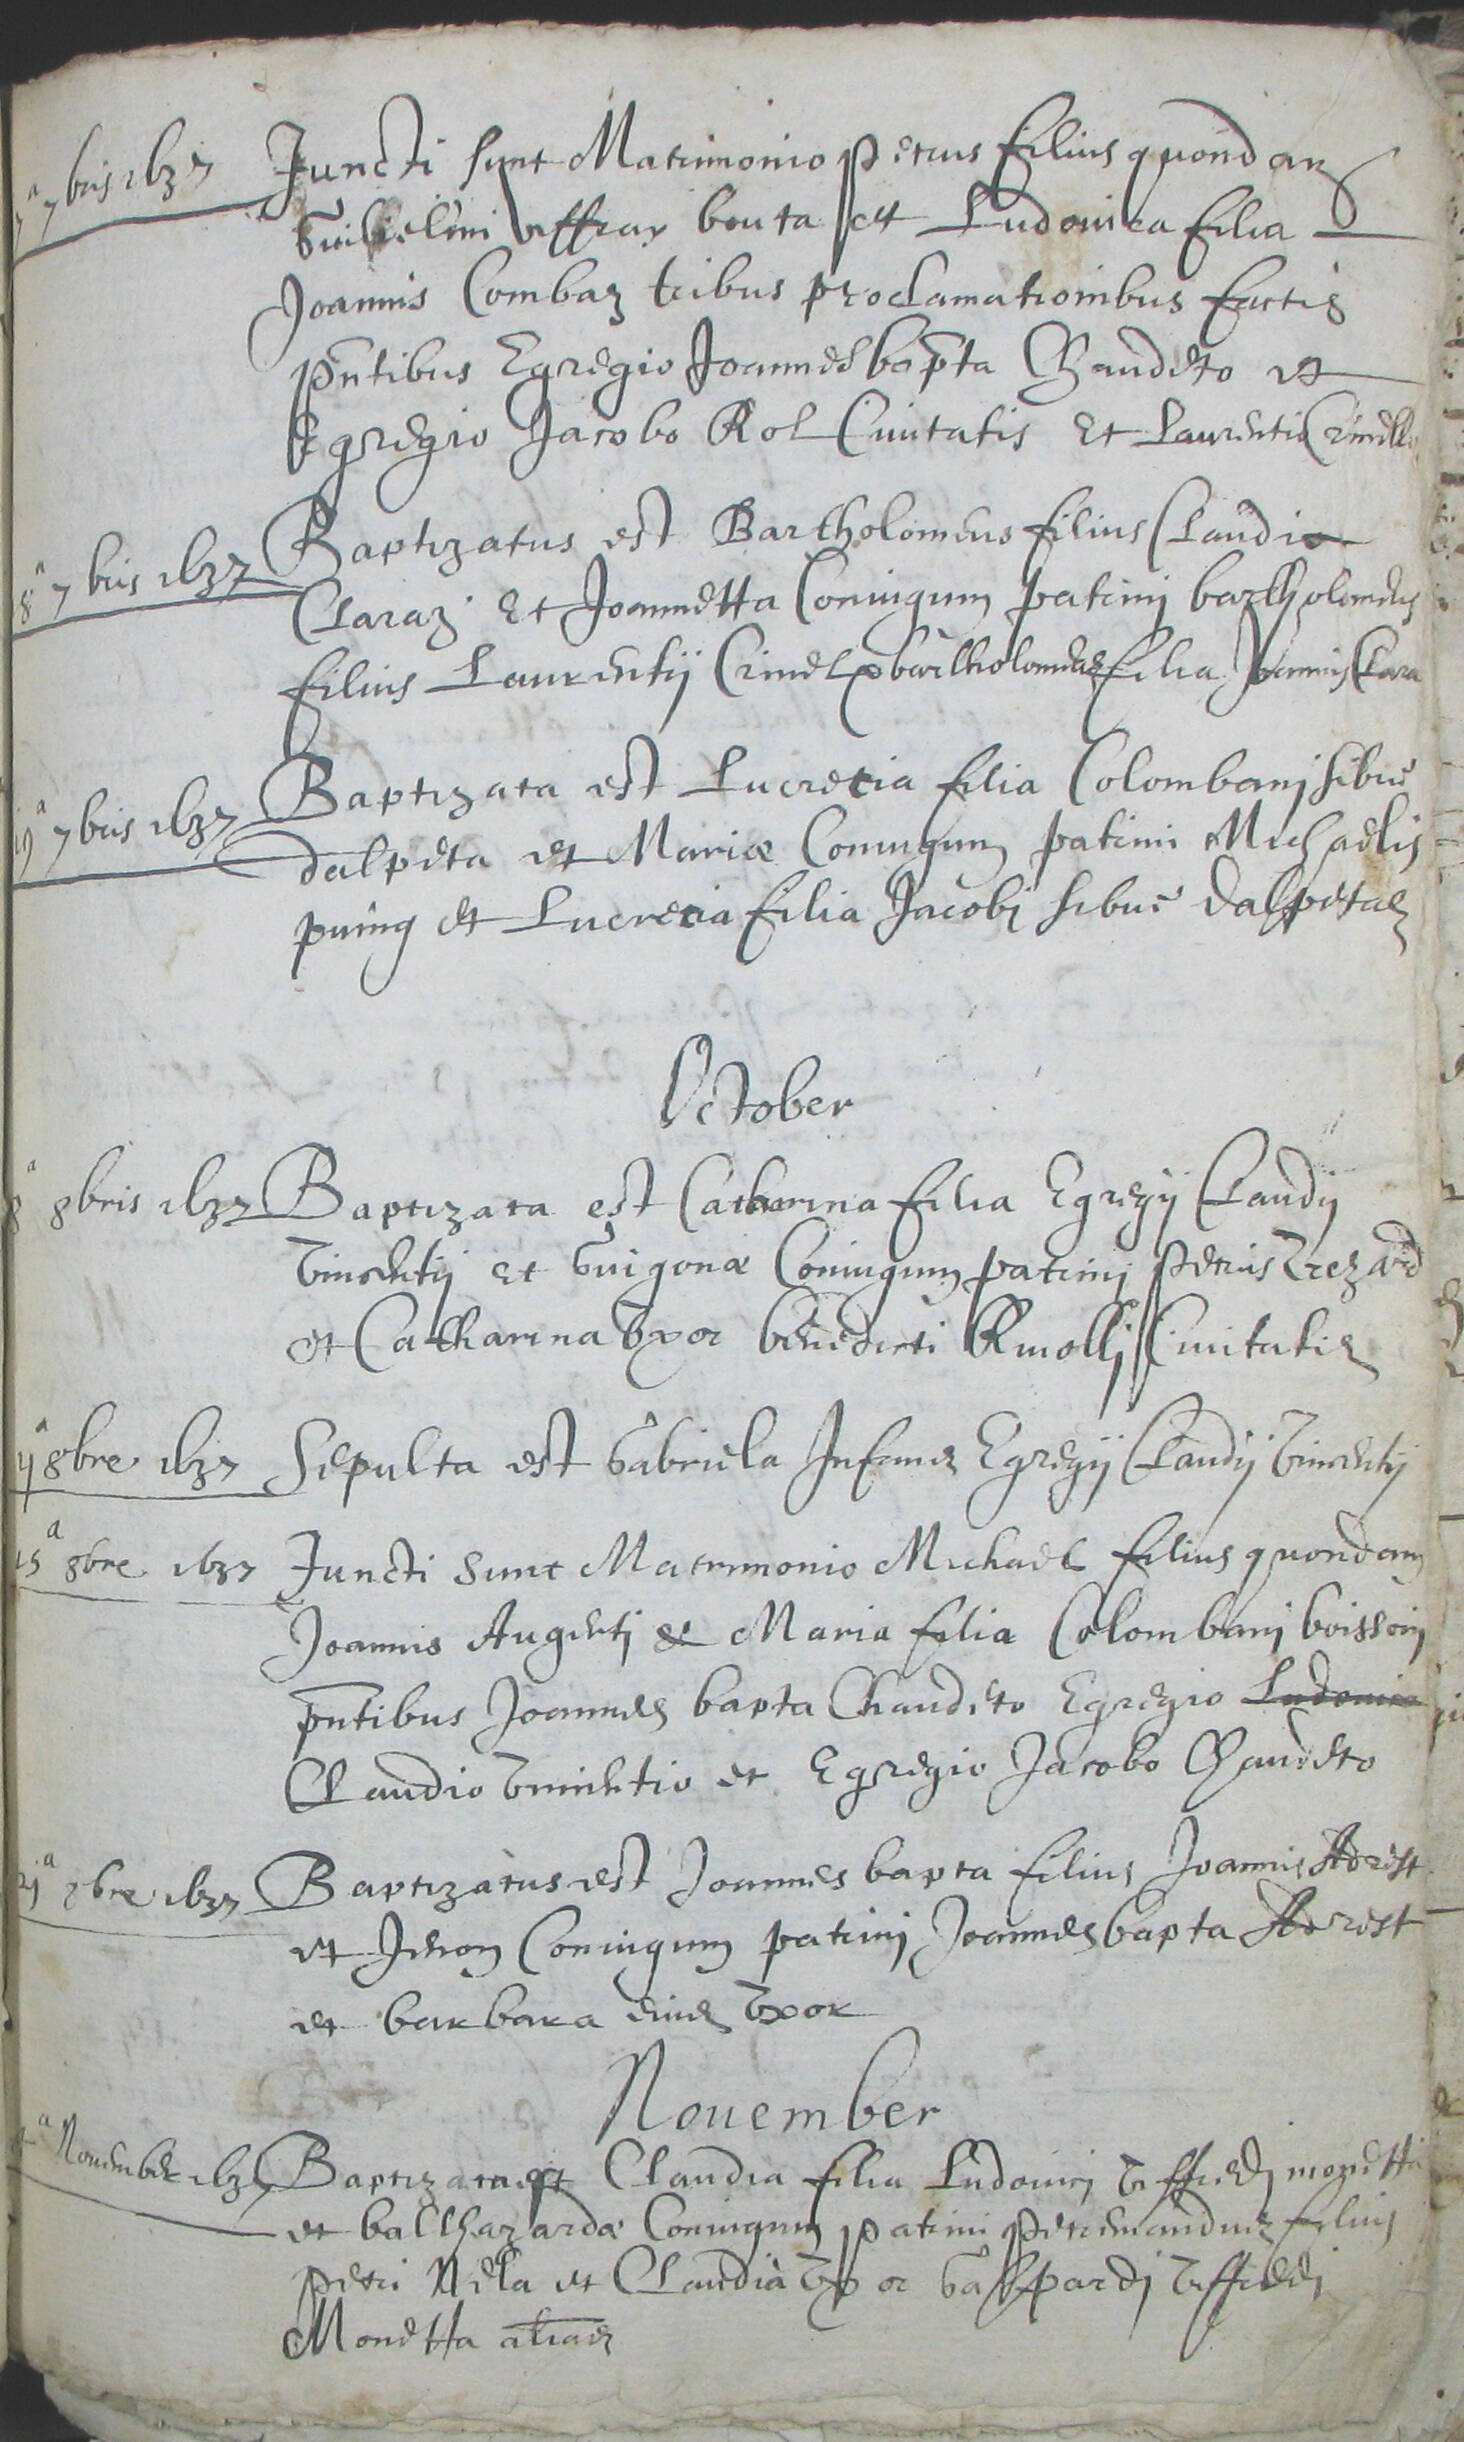 7bris 1637 Juncti sunt Matrimonio Petrus filius quondam
Guilielmi Veffray bouta et Ludovica filia
Joannis Combaz tribus proclamationibus factis
pntibus Egregio Joannes bapta Chaudeto et
Egregio Jacobo Rol Civitatis Et Laurentio Crinello
18a 7bris 1637 Baptizatus est Bartholomeus filius Claudi
Claraz Et Joannetta Coniugum patrini bartholomeus
filius Laurentij Crinel bartholomea filia Joannis Clara
19a 7bris 1637 Baptizata est Lucretia filia Colombani sibue
dalpeta et Mariæ Coniugum patrini Michaelis
et Lucretia filia Jacobi sibue dalpetaz
October
8a 8bris 1637 Baptizata est Catharina filia Egregij Claudij
Vincentij et Guigonæ Coniugum patrini Petrus Trezard
et Catharina Vxor benedicti Ruolli Civitatis
8bre 1637 Sepulta est Gabriela Infans Egregij Claudij Vincentij
15a 8bre 1637 Juncti sunt Matrimonio Michael filius quondam
Joannis Augerti et Maria filia Colombani boissonj
pntibus Joannes bapta Chaudeto Egregio Ludovico
Claudio Vincentio et Egregio Jacobo Chaudeto
21a 8bre 1637 Baptizatus est Joannes bapta filius Joannis
et Jenon Coniugum patrini Joannes bapta
et barbara eius Vxor
November
a Nouember 1637 Baptizata est Claudia filia Ludovici Veffredi monetta
et balthazardæ Coniugum patrini Petremandus filius
petri Nela et Claudia Vxor Gaspardi Veffredi
Monetta